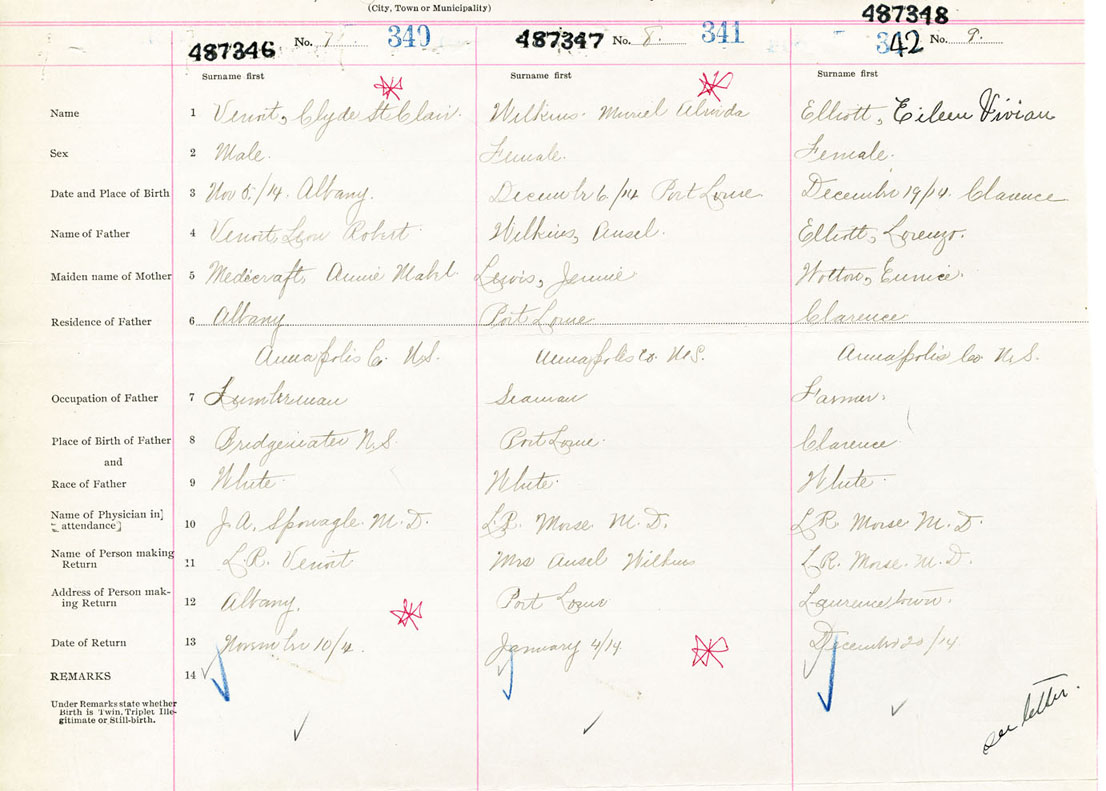 (City, Town or Municipality)
487346 No. 7 340 487347 No. 8. 341 487348 342 No. 9.
Surname first Surname first Surname first
Name 1 Venoit, Clyde St. Clair. Wilkins. Muriel Almida Elliott, Eileen Vivian
Sex 2 Male. Female. Female.
Date and Place of Birth 3 Nov 5/14. Albany. December 6/14 Port Lorne December 19/14. Clarence
Name of Father 4 Venoit, Leon Robert Wilkins, Ansel. Elliott, Lorenzo.
Maiden name of Mother 5 Medicraft, Annie Mabel Lewis, Jennie Wotton, Eunice.
Residence of Father 6 Albany Port Lorne Clarence
Annapolis Co. N.S. Annapolis Co. N.S. Annapolis Co N.S.
Occupation of Father 7 Lumberman Seaman Farmer.
Place of Birth of Father 8 Bridgewater N.S. Port Lorne. Clarence
and
Race of Father 9 White White White
Name of Physician in attendance 10 J.A. Sponagle M.D. L.R. Morse M.D. L.R. Morse M.D.
Name of Person making Return 11 L.R. Venoit Mrs Ansel Wilkins L.R. Morse M.D.
Address of Person making Return 12 Albany. Port Lorne Lawrencetown.
Date of Return 13 November 10/14. January 4/14 December 20/14
REMARKS 14
Under Remarks state whether
Birth is Twin, Triplet Ille-
gitimate or Still-birth.
see letter.